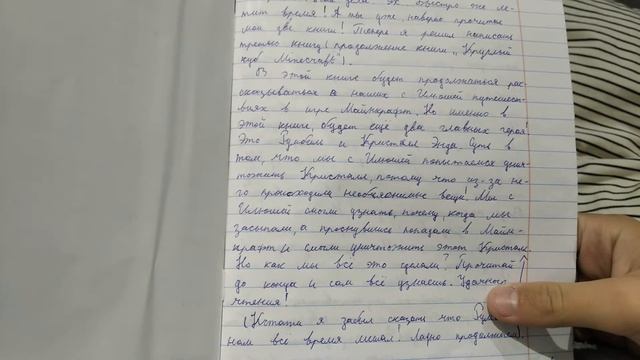 дела. Эх быстро же ле-
тит время! А ты уже, наверно прочитал
мои две книги! Теперь я решил написать
третью книгу (продолжение книги „Круглый
куб Minecraft").
В этой книге будет продолжаться рас-
сказываться о наших с Илюшей путешест-
виях в игре Майнкрафт. Но именно в
этой книге, будет ещё два главных героя!
Это и Кристалл Энда Суть в
том, что мы с Илюшей попытаемся унич-
тожить Кристалл, потому что из-за не-
го происходили необъяснимые вещи! Мы с
Илюшей смогли узнать, почему, когда мы
засыпали, а проснувшись попадали в Майн-
крафт и смогли уничтожить этот Кристалл.
Но как мы всё это сделали? Прочитай
до конца и сам всё узнаешь. Удачного
чтения!
(Кстати я забыл сказать что
нам всё время мешал! Ладно продолжаем).